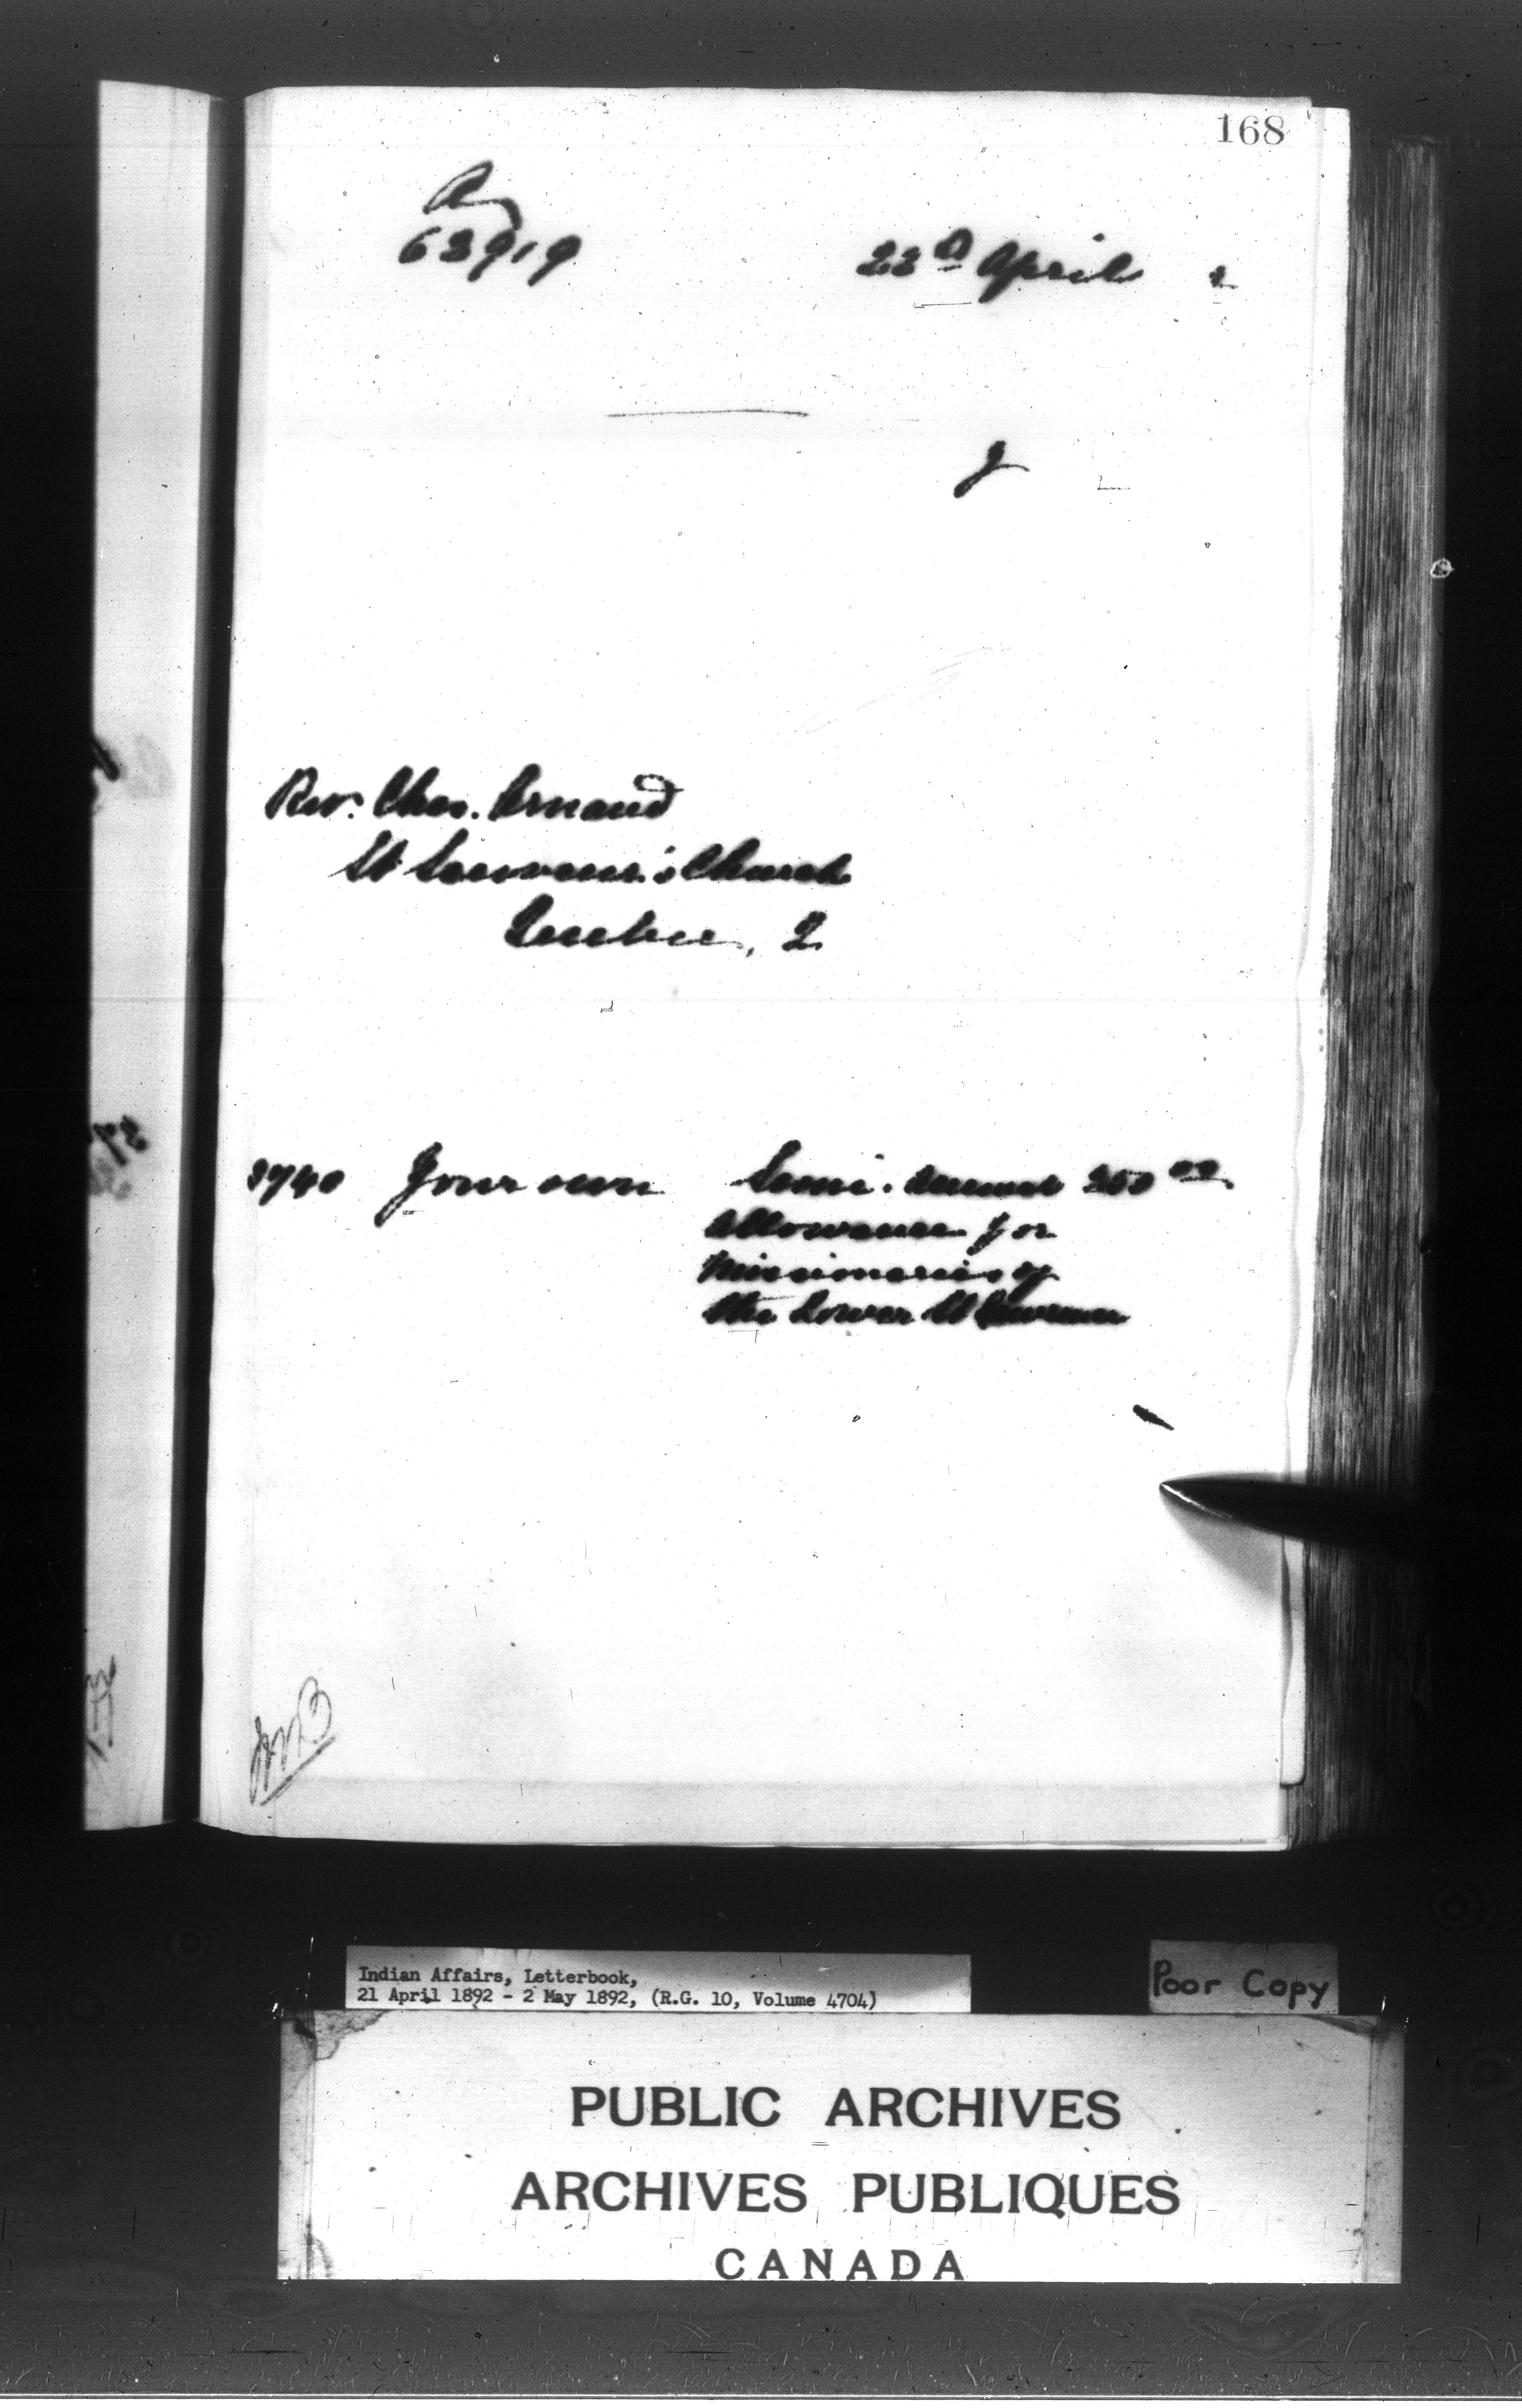 168
62919
22d April 2
J
Rev. Chas. Arnaud
St Sauveur's Church
Quebec, Q
3740 Your own Semi-Annual 250 00
Allowance for
Missionaries of
the Lower St Lawrence
Indian Affairs, Letterbook,
21 April 1892 - 2 May 1892, (R.G. 10, Volume 4704)
Poor Copy
PUBLIC ARCHIVES
ARCHIVES PUBLIQUES
CANADA